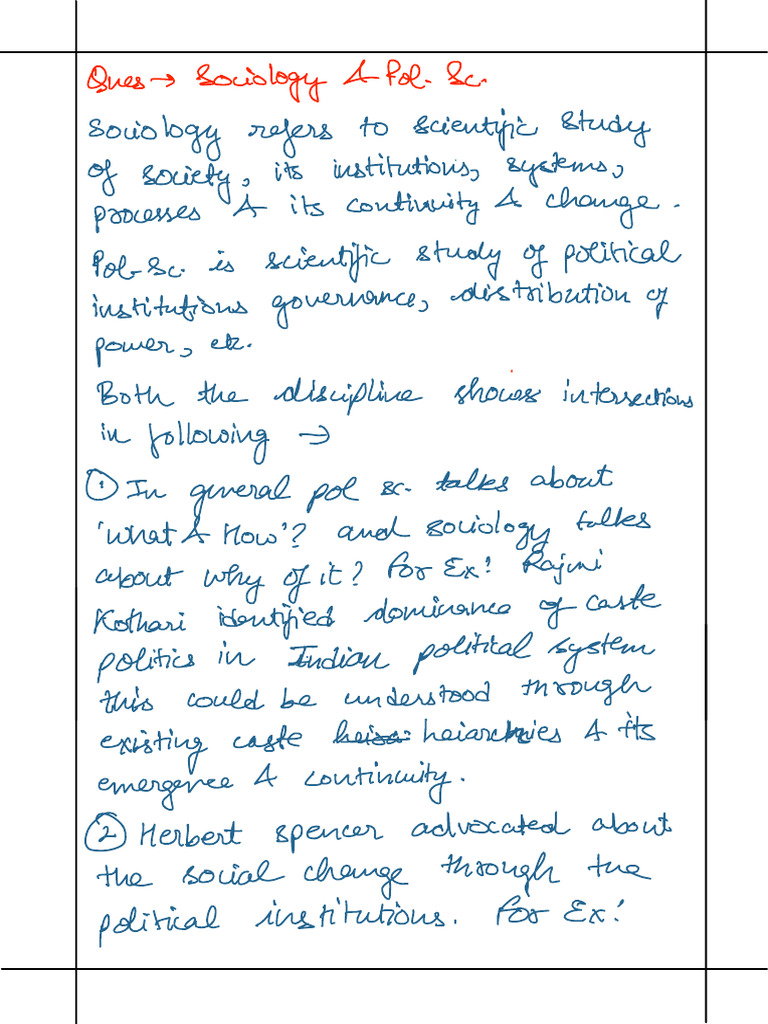 Ques → Sociology & Pol. Sc.
Sociology refers to scientific study
of society, its institutions, systems,
processes & its continuity & change.
Pol-Sc. is scientific study of political
institutions governance, distribution of
power, etc.
Both the discipline shows intersections
in following →
① In general pol sc. talks about
'what & How'? and sociology talks
about why of it? For Ex: Rajni
Kothari identified dominance of caste
politics in Indian political system
this could be understood through
existing caste heiarchies & its
emergence & continuity.
② Herbert spencer advocated about
the social change through the
political institutions. For Ex: